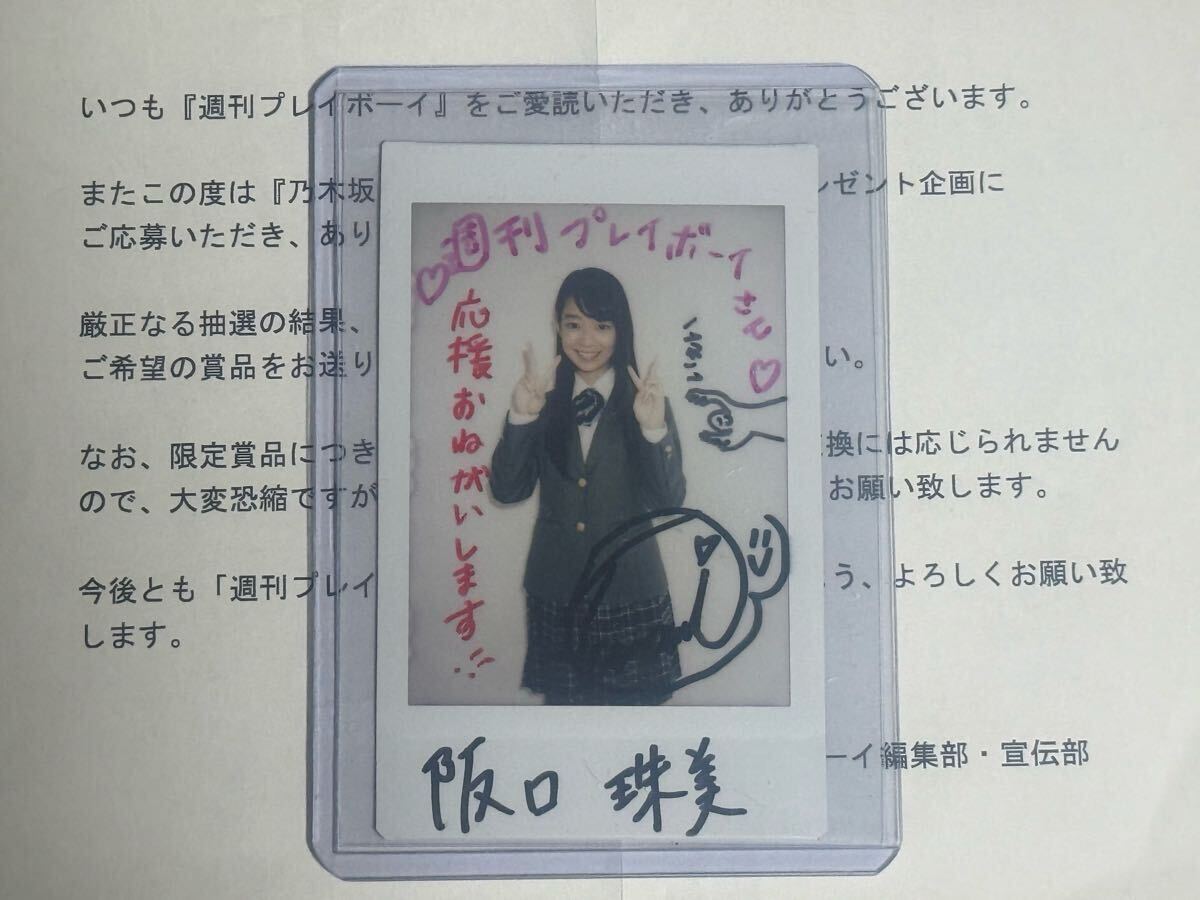 いつも『週刊プレイボーイ』をご愛読いただき、ありがとうございます。
またこの度は『乃木坂
レゼント企画に
ご応募いただき、あり
厳正なる抽選の結果、
ご希望の賞品をお送り
い。
なお、限定賞品につき
換には応じられません
ので、大変恐縮ですが
お願い致します。
今後とも「週刊プレイ
う、よろしくお願い致
します。
ーイ編集部・宣伝部
週刊プレイボーイさん♡
応援おねがいします!!
阪口 珠美